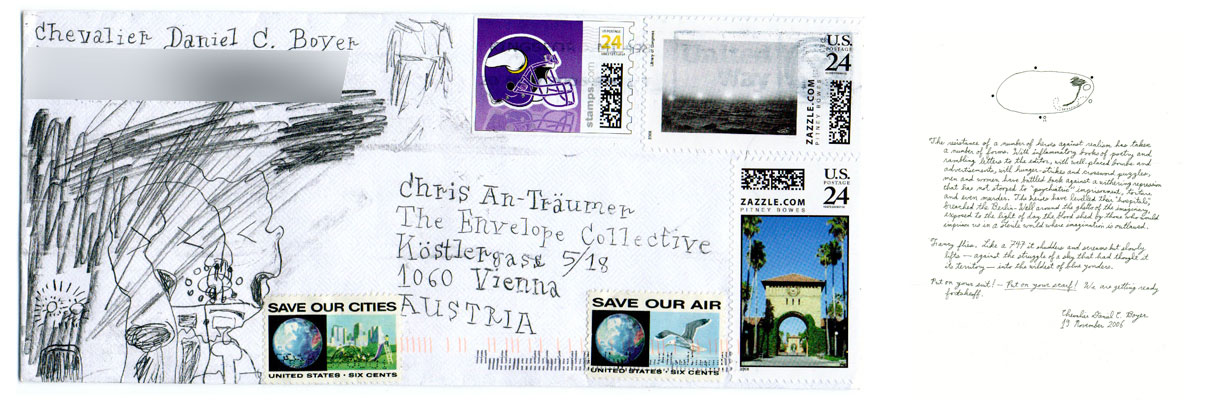 Chevalier Daniel C. Boyer
24
stamps.com
Library of Congress
U.S.
POSTAGE
24
ZAZZLE.COM
PITNEY BOWES
Chris An-Träumer
The Envelope Collective
Köstlergass 5/18
1060 Vienna
AUSTRIA
ZAZZLE.COM
PITNEY BOWES
U.S.
POSTAGE
24
SAVE OUR CITIES
UNITED STATES · SIX CENTS
SAVE OUR AIR
UNITED STATES · SIX CENTS
The resistance of a number of heroes against realism has taken
a number of forms. With inflammatory books of poetry and
rambling letters to the editor, with well-placed bombs and
advertisements, with hunger-strikes and crossword puzzles,
men and women have battled back against a withering repression
that has not stopped to "psychiatric" imprisonment, torture
and even murder. The heroes have levelled their "hospitals",
breached the Berlin Wall around the ghetto of the imaginary,
exposed to the light of day the blood shed by those who would
imprison us in a sterile world where imagination is outlawed.
Fancy flies. Like a 747 it shudders and screams but slowly
lifts — against the struggle of a sky that had thought it
its territory — into the wildest of blue yonders.
Put on your suit! — Put on your scarf! We are getting ready
for takeoff.
Chevalier Daniel C. Boyer
19 November 2006